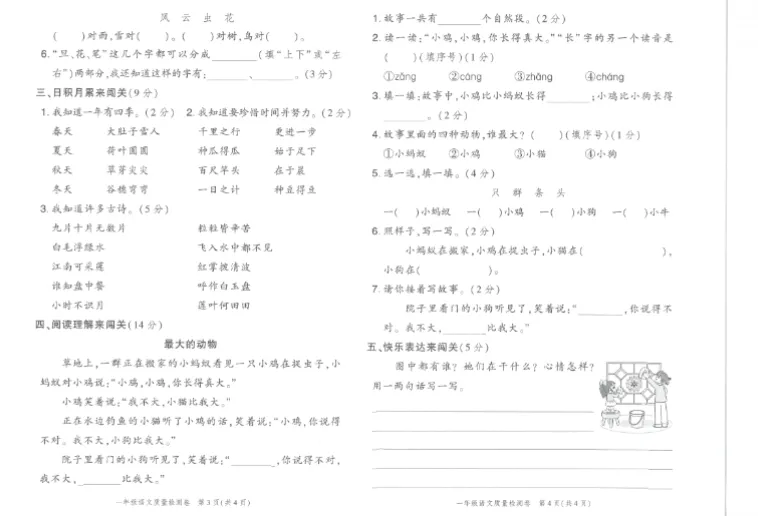 风 云 虫 花
(    )对雨,雪对(    )。(    )对树,鸟对(    )。
6.“旦、花、笔”这几个字都可以分成________(填“上下”或“左
右”)两部分,我还知道这样的字有:________、________。(3分)
三、日积月累来闯关(9分)
1.我知道一年有四季。(2分) 2.我知道要珍惜时间并努力。(2分)
春天 大肚子雪人 千里之行 更进一步
夏天 荷叶圆圆 种瓜得瓜 始于足下
秋天 草芽尖尖 百尺竿头 在于晨
冬天 谷穗弯弯 一日之计 种豆得豆
3.我知道许多古诗。(5分)
九月十月无数片 粒粒皆辛苦
白毛浮绿水 飞入水中都不见
江南可采莲 红掌拨清波
谁知盘中餐 呼作白玉盘
小时不识月 莲叶何田田
四、阅读理解来闯关(14分)
最大的动物
草地上,一群正在搬家的小蚂蚁看见一只小鸡在捉虫子,小
蚂蚁对小鸡说:“小鸡,小鸡,你长得真大。”
小鸡笑着说:“我不大,小猫比我大。”
正在水边钓鱼的小猫听了小鸡的话,笑着说:“小鸡,你说得
不对。我不大,小狗比我大。”
院子里看门的小狗听见了,笑着说:“________,你说得不对,
我不大,________比我大。”
一年级语文质量检测卷 第3页(共4页)
1.故事一共有________个自然段。(2分)
2.读一读:“小鸡,小鸡,你长得真大。”“长”字的另一个读音是
(    )(填序号)(1分)
①zāng ②cáng ③zhǎng ④cháng
3.填一填:故事中,小鸡比小蚂蚁长得________;小鸡比小狗长得
________。(2分)
4.故事里面的四种动物,谁最大?(    )(填序号)(1分)
①小蚂蚁 ②小鸡 ③小猫 ④小狗
5.选一选,填一填。(4分)
只 群 条 头
一(    )小蚂蚁 一(    )小鸡 一(    )小狗 一(    )小牛
6.照样子,写一写。(2分)
小蚂蚁在搬家,小鸡在捉虫子,小猫在(    ),
小狗在(    )。
7.请你接着写故事。(2分)
院子里看门的小狗听见了,笑着说:“________,你说得不
对。我不大,________比我大。”
五、快乐表达来闯关(5分)
图中都有谁?她们在干什么?心情怎样?
用一两句话写一写。
一年级语文质量检测卷 第4页(共4页)